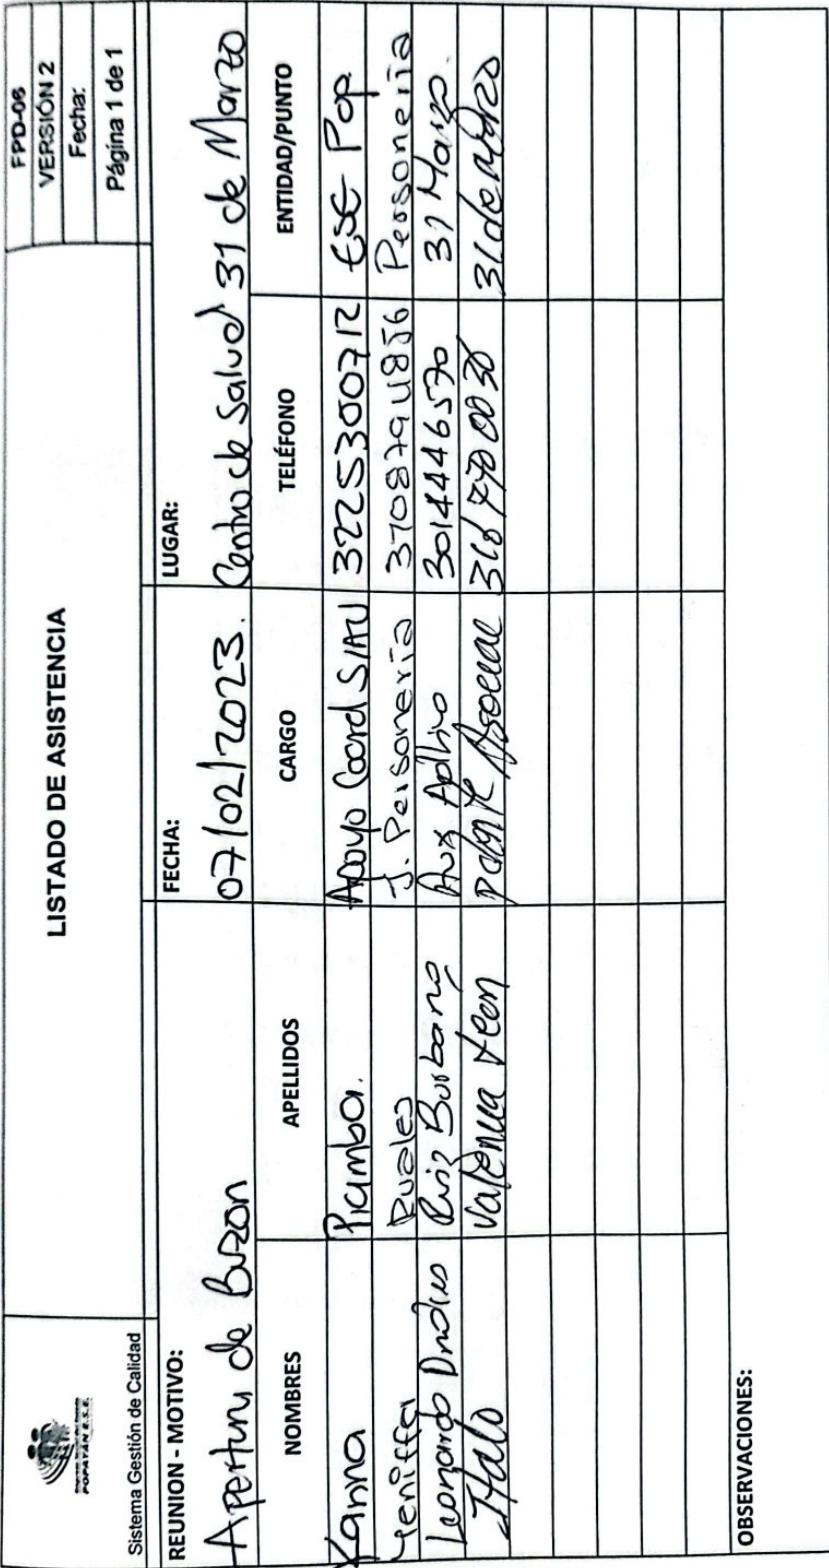 POPAYÁN E.S.E.
Sistema Gestión de Calidad
LISTADO DE ASISTENCIA
FPD-06
VERSIÓN 2
Fecha:
Página 1 de 1
REUNION - MOTIVO:
Apertura de Buzon
FECHA:
07/02/2023.
LUGAR:
Centro de Salud 31 de Marzo
NOMBRES APELLIDOS CARGO TELÉFONO ENTIDAD/PUNTO
Yanna Piamba. Apoyo Coord SIAU 3225300712 ESE Pop.
Yeniffer Ruales J. Personería Personería
Leonardo Andres Ruiz Burbano Aux Adtivo 3014446570 31 Marzo.
Italo Valencia Leon 31 de Marzo
OBSERVACIONES: